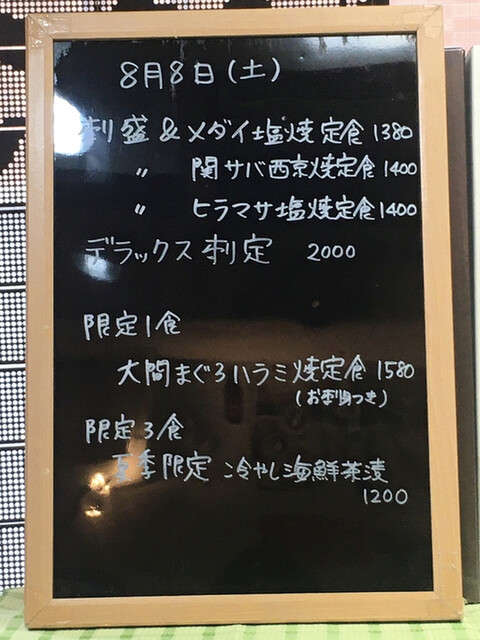 8月8日(土)
刺盛&メダイ塩焼定食 1380
〃 関サバ西京焼定食 1400
〃 ヒラマサ塩焼定食 1400
デラックス刺定 2000
限定1食
大間まぐろハラミ焼定食 1580
(お刺身つき)
限定3食
夏季限定 冷やし海鮮茶漬
1200